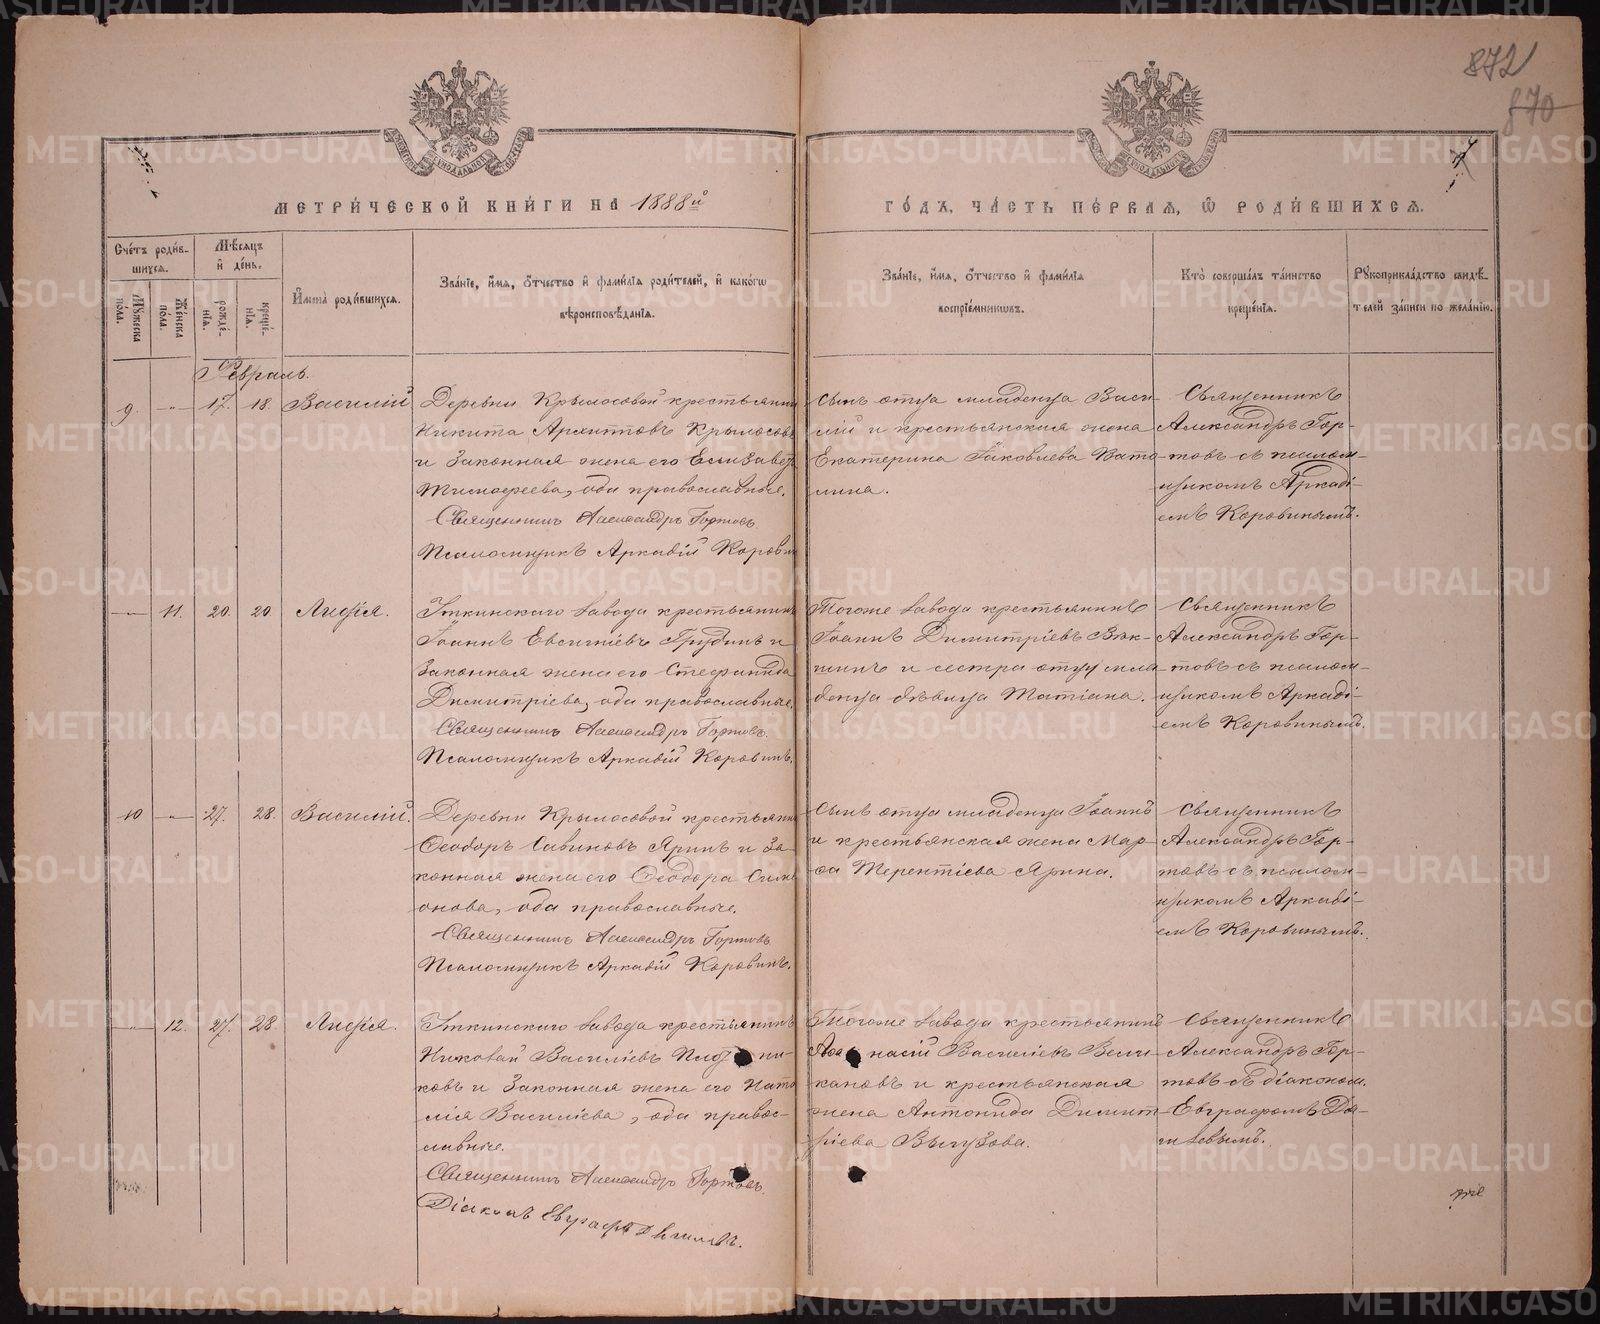 872
870
МЕТРИЧЕСКОЙ КНИГИ НА 1888й
ГОДЪ, ЧАСТЬ ПЕРВАЯ, Ѡ РОДИВШИХСЯ.
Счетъ родив-
шихся.
Мужеска пола.
Женска пола.
Мѣсяцъ
и день.
рожде-
нія.
креще-
нія.
Имена родившихся.
Званіе, имя, отчество и фамилія родителей, и какогѡ
вѣроисповѣданія.
Званіе, имя, отчество и фамилія
воспріемниковъ.
Кто совершалъ таинство
крещенія.
Рукоприкладство свидѣ-
телей записи по желанію.
Февраль.
9. -"- 17. 18. Василій
Деревни Крылосовой крестьянин
Никита Архиповъ Крылосовъ
и законная жена его Елизавет
Тимофеева, оба православные.
Священникъ Александръ Гортовъ
Псаломщикъ Аркадій Коровин
Сынъ отца младенца Васи-
лій и крестьянская жена
Екатерина Іаковлева Вато-
лина.
Священникъ
Александръ Гор-
товъ съ псалом-
щикомъ Аркаді-
емъ Коровинымъ.
11. 20. 20. Лидія.
Уткинскаго завода крестьянинъ
Іоаннъ Евсигніевъ Грудинъ и
законная жена его Стефанида
Димитріева, оба православные.
Священникъ Александръ Гортовъ.
Псаломщикъ Аркадій Коровинъ.
Тогоже завода крестьянинъ
Іоаннъ Димитріевъ Вяк-
шинъ и сестра отца мла-
денца дѣвица Татіана.
Священникъ
Александръ Гор-
товъ съ псалом-
щикомъ Аркаді-
емъ Коровинымъ.
10 -"- 27. 28. Василій.
Деревни Крылосовой крестьянин
Ѳеодоръ Савиновъ Яринъ и за-
конная жена его Ѳеодора Сим
онова, оба православные.
Священникъ Александръ Гортовъ
Псаломщикъ Аркадій Коровинъ.
Сынъ отца младенца Іоаннъ
и крестьянская жена Мар-
ѳа Терентіева Ярина.
Священникъ
Александръ Гор-
товъ съ псалом-
щикомъ Аркаді-
емъ Коровинымъ.
12. 27. 28. Лидія.
Уткинскаго завода крестьянинъ
Николай Василіевъ Плотни-
ковъ и законная жена его Ната
лія Василіева, оба правос-
лавные.
Священникъ Александръ Гортовъ.
Діаконъ Евграфъ
Тогоже завода крестьянинъ
Аѳанасій Василіевъ Вели-
кановъ и крестьянская
жена Антонида Димит-
ріева Выгузова.
Священникъ
Александръ Гор-
товъ съ діаконом.
Евграфомъ
METRIKI.GASO-URAL.RU